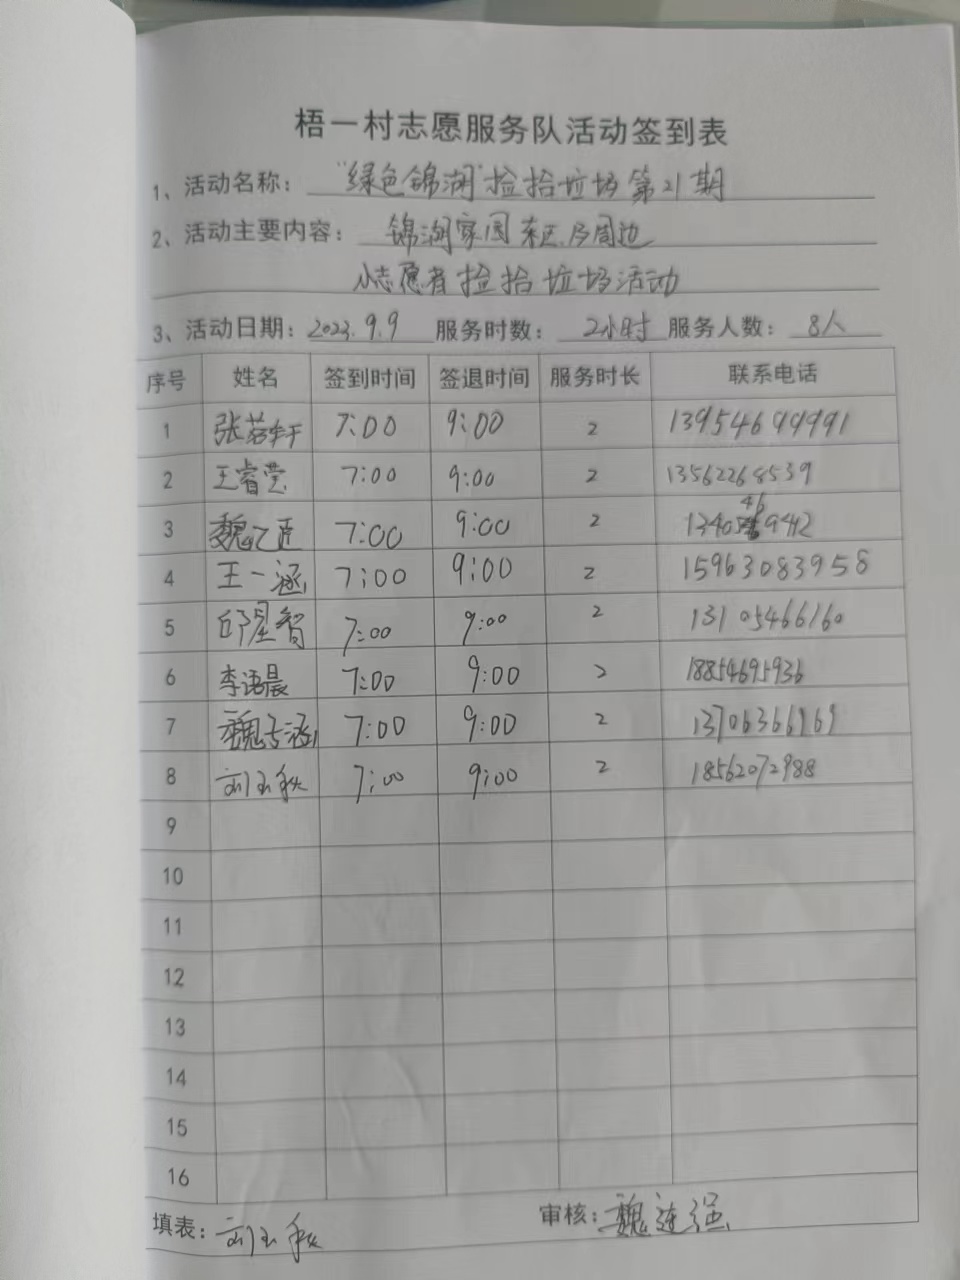 梧一村志愿服务队活动签到表
1、活动名称：“绿色锦湖”捡拾垃圾第21期
2、活动主要内容：锦湖家园东区及周边
小志愿者捡拾垃圾活动
3、活动日期：2023.9.9 服务时数：2小时 服务人数：8人
序号 姓名 签到时间 签退时间 服务时长 联系电话
1 张若轩 7:00 9:00 2 13954699991
2 王睿莹 7:00 9:00 2 13562268539
3 魏 7:00 9:00 2
4 王一涵 7:00 9:00 2 15963083958
5 邱星智 7:00 9:00 2 13105466160
6 李语晨 7:00 9:00 2 18854695936
7 魏子涵 7:00 9:00 2 13706366969
8 刘玉秋 7:00 9:00 2 18562072988
9
10
11
12
13
14
15
16
填表：刘玉秋 审核：魏连强